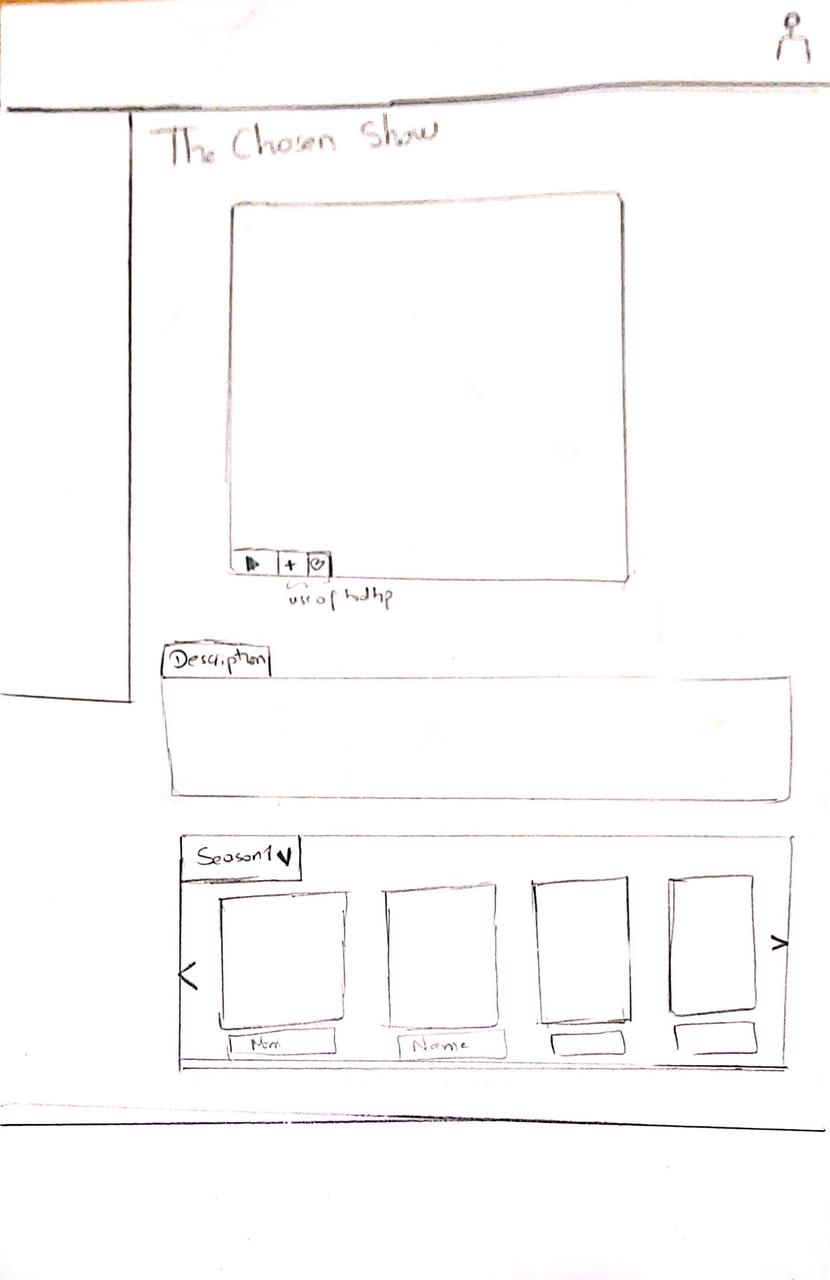 The Chosen Show
+
use of
Description
Season 1 V
<
>
Name